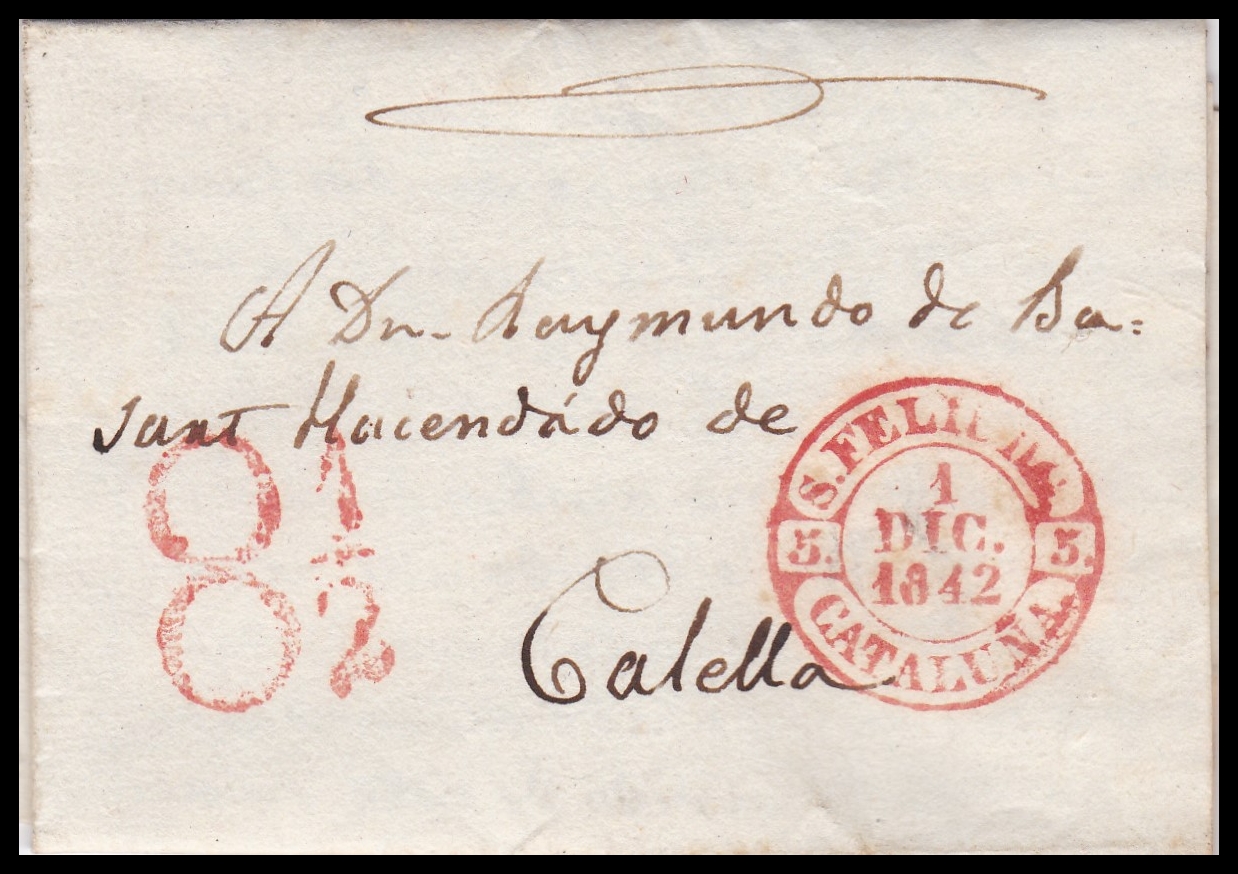 A Dn. Raymundo de Ba=
sant Hacendádo de
Calella
8 1/2
S. FELIU
1
DIC.
1842
5. 5.
CATALUÑA.